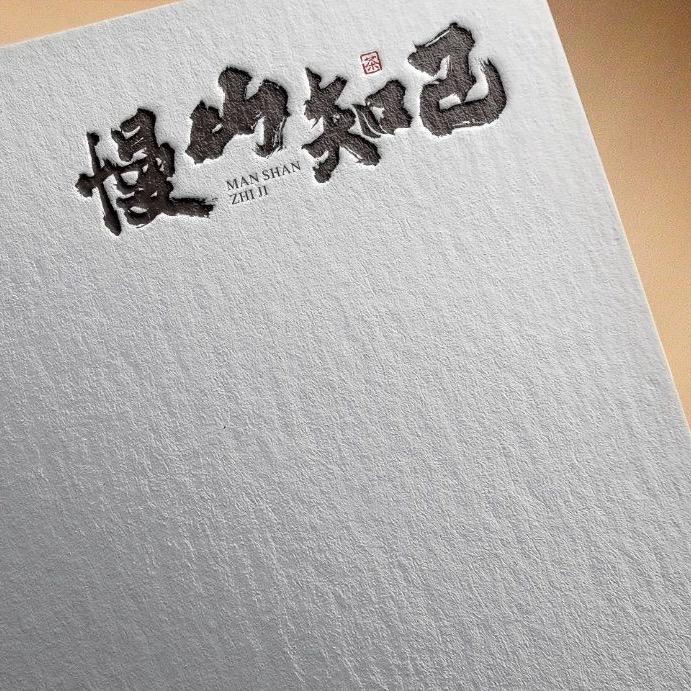 慢山知己
茶
MAN SHAN
ZHI JI